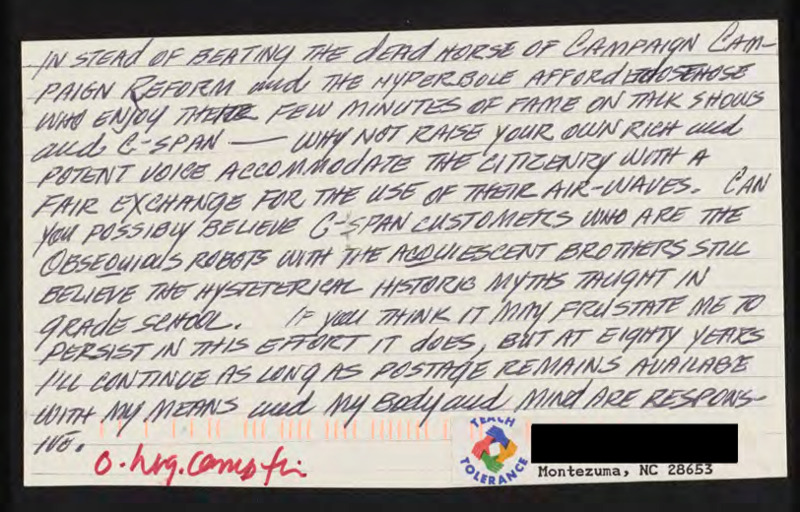 IN STEAD OF BEATING THE dEAD HORSE OF CAMPAIGN CAM-
PAIGN REFORM and THE HYPERBOLE AFFORDED THOSE
WHO ENJOY THEIR FEW MINUTES OF FAME ON TALK SHOWS
and C-SPAN — WHY NOT RAISE YOUR OWN RICH and
POTENT VOICE ACCOMMODATE THE CITIZENRY WITH A
FAIR EXCHANGE FOR THE USE OF THEIR AIR-WAVES. CAN
YOU POSSIBLY BELIEVE C-SPAN CUSTOMERS WHO ARE THE
OBSEQUIOUS ROBOTS WITH THE ACQUIESCENT BROTHERS STILL
BELIEVE THE HYSTETERICAL HISTORIC MYTHS TAUGHT IN
GRADE SCHOOL. IF YOU THINK IT MAY FRUSTATE ME TO
PERSIST IN THIS EFFORT IT dOES, BUT AT EIGHTY YEARS
I'LL CONTINUE AS LONG AS POSTAGE REMAINS AVAILABLE
WITH MY MEANS and MY BOdy and MINd ARE RESPONS-
IVE.
TEACH
TOLERANCE
Montezuma, NC 28653